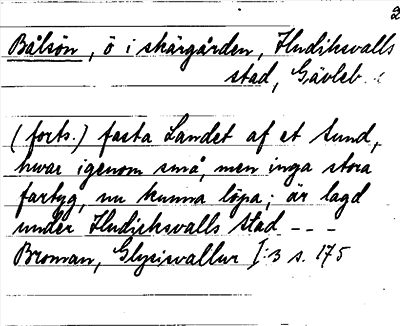 2
Bålsön, ö i skärgården, Hudiksvalls
stad, Gävleb.
(forts.) fasta Landet af et Sund,
hvar igenom små, men inga stora
fartyg, nu kunna löpa; är lagd
under Hudichsvalls Stad - - -
Broman, Glysisvallur I:3 s. 175